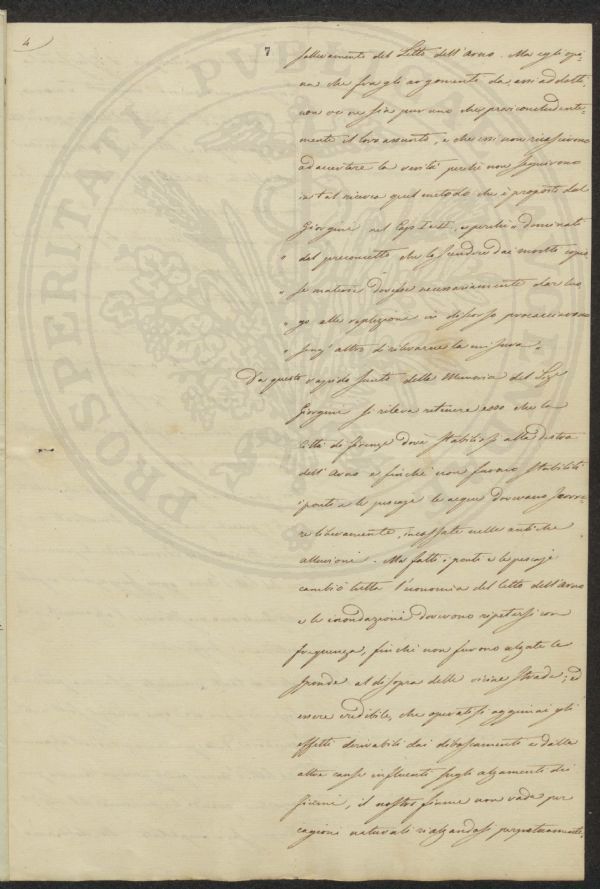 4
7
sollevamento del Letto dell'Arno. Ma egli opi=
na che fra gli argomenti da essi addotti,
non ve ne sia pur uno che provi concludente=
mente il loro assunto, e che essi non riuscirono
ad accertare la verità perché non seguirono
in tal ricerca quel metodo che è proposto dal
Giorgini nel Cap. I e II, e perché " dominati
" dal preconcetto che lo scendere dai monti copio
" se materie dovesse necessariamente dar luo
" go alla replezione in discorso procacciavano
" senz'altro di rilevarne la misura. "
Da questo rapido sunto della Memoria del Sig.
Giorgini si rileva ritenere esso che la
Città di Firenze dové stabilirsi alla destra
dell'Arno e finché non furono stabiliti
i ponti e le pescaje le acque dovevano scorre=
re liberamente, incassate nelle antiche
alluvioni. Ma fatti i ponti e le pescaje
cambiò tutta l'economia del letto dell'Arno
e le inondazioni dovevono ripetersi con
frequenza, finché non furono alzate le
sponde al disopra delle vicine strade; ed
essere credibile, che operatisi oggimai gli
effetti derivabili dai diboscamenti e dalle
altre cause influenti sugli alzamenti dei
fiumi, il nostro fiume non vada per
cagioni naturali rialzandosi perpetuamente,
PROSPERITATI PVBL